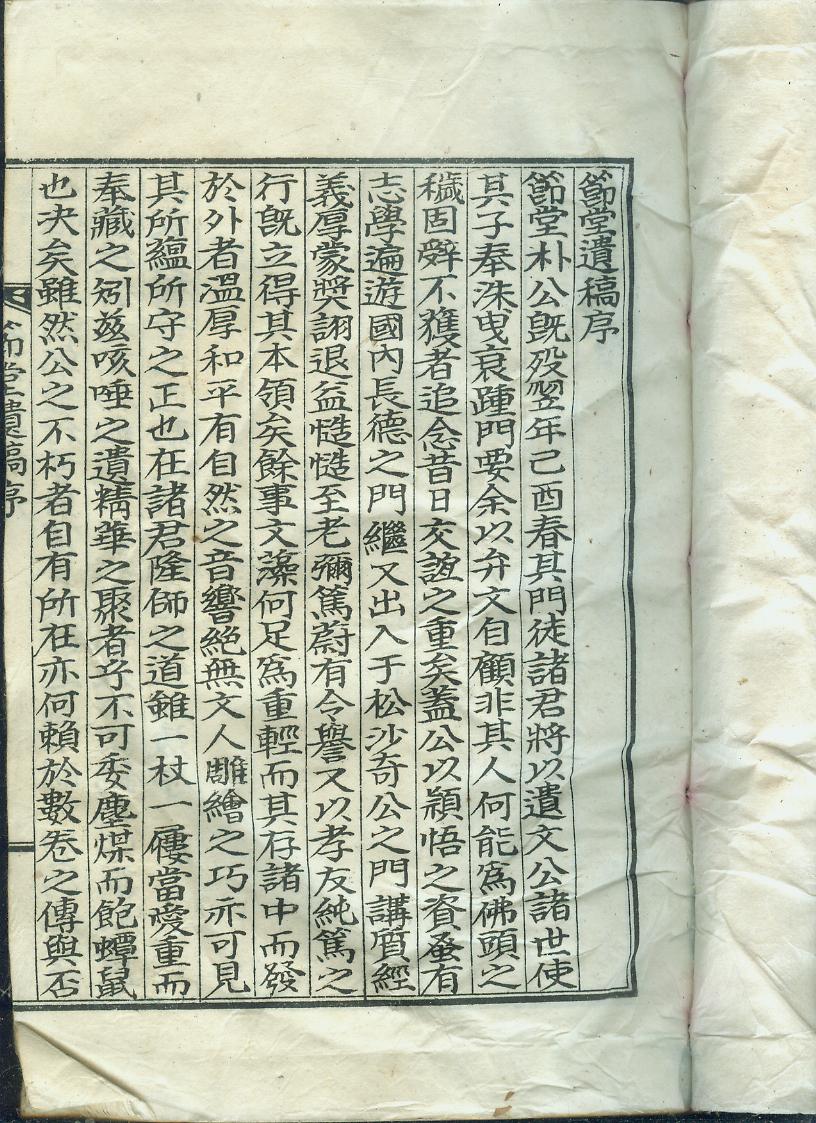 節堂遺稿序
節堂朴公旣歿翌年己酉春其門徒諸君將以遺文公諸世使
其子奉洙曳衰踵門要余以弁文自顧非其人何能爲佛頭之
穢固辭不獲者追念昔日交誼之重矣蓋公以穎悟之資蚤有
志學遍遊國內長德之門繼又出入于松沙奇公之門講質經
義厚蒙奬詡退益慥慥至老彌篤蔚有令譽又以孝友純篤之
行旣立得其本領矣餘事文藻何足爲重輕而其存諸中而發
於外者溫厚和平有自然之音響絕無文人雕繪之巧亦可見
其所蘊所守之正也在諸君隆師之道雖一杖一屨當愛重而
奉藏之矧玆咳唾之遺精華之聚者乎不可委塵煤而飽蟫鼠
也決矣雖然公之不朽者自有所在亦何賴於數卷之傳與否
節堂遺稿序